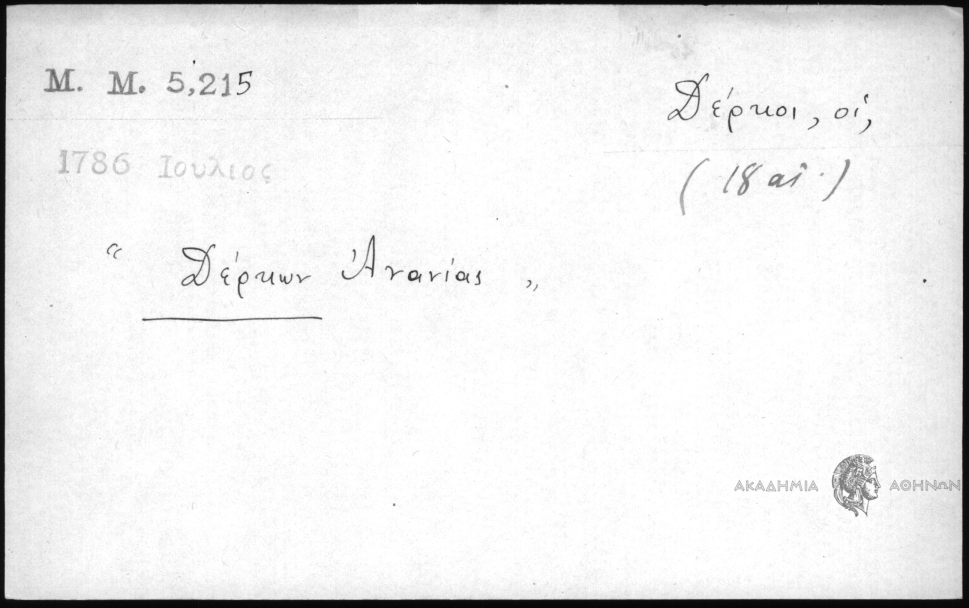 M. M. 5,215
Δέρκοι, οἱ,
(18 αἰ.)
1786 Ιουλιος
“ Δέρκων Ἀνανίας „
ΑΚΑΔΗΜΙΑ ΑΘΗΝΩΝ